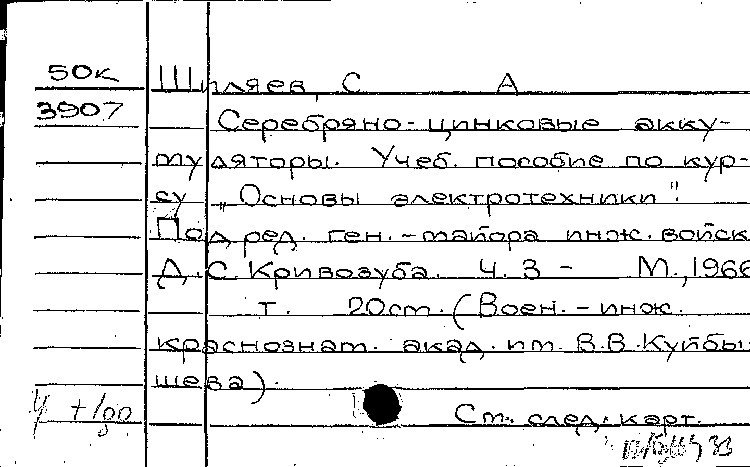 50к Шиляев, С А
3907 Серебряно-цинковые акку-
муляторы. Учеб. пособие по кур-
су „Основы электротехники".
Под ред. ген.-майора инж. войск
Д.С. Кривозуба. Ч. 3 - М., 1966
т. 20см. (Воен.-инж.
краснознам. акад. им. В.В. Куйбы
шева).
Ст. след. карт.